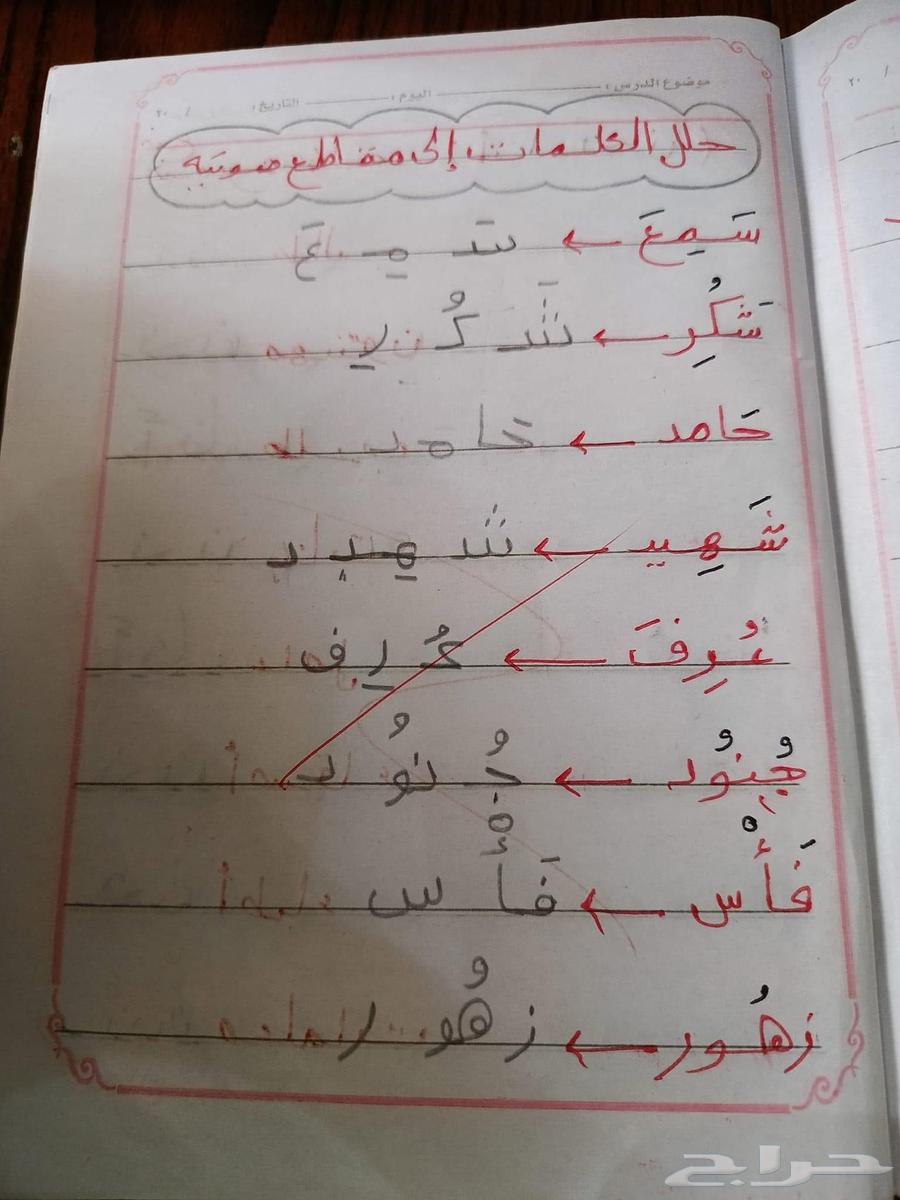 موضوع الدرس : اليوم : التاريخ : / ٢٠
حلل الكلمات إلى مقاطع صوتية
سَمِعَ ← سَـ مِـ عَ
شَكُرِ ← شَـ كُـ رِ
حَامد ← حَا مـ د
شَهِيد ← شـ هِـ يـ د
عُرِفَ ← عُـ رِ ف
جُنُود ← جُـ نُو د
فَأْس ← فَـ أْ س
زهُور ← ز هُو ر
حراج